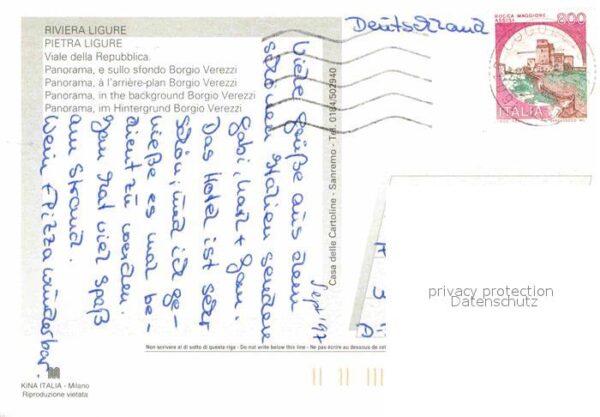 RIVIERA LIGURE
PIETRA LIGURE
Viale della Repubblica.
Panorama, e sullo sfondo Borgio Verezzi
Panorama, à l'arrière-plan Borgio Verezzi
Panorama, in the background Borgio Verezzi
Panorama, im Hintergrund Borgio Verezzi
Deutschland
ROCCA MAGGIORE
ASSISI
800
ITALIA
Viele Grüße aus dem
schönen Italien senden
Gabi, Karl + Yann.
Das Hotel ist sehr
schön, und ich ge-
nieße es mal be-
dient zu werden.
Yann hat viel Spaß
am Strand.
Wein + Pizza wunderbar.
Sept '97
Casa delle Cartoline - Sanremo - Tel. 0184/502940
privacy protection
Datenschutz
Non scrivere al di sotto di questa riga - Do not write below this line - Ne pas écrire au dessous de cet
KINA ITALIA - Milano
Riproduzione vietata